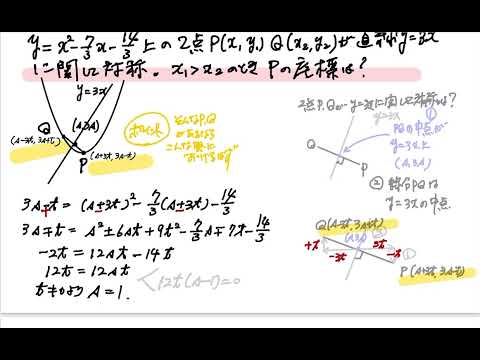 y=x²-7/3x-14/3 上の2点P(x₁y₁) Q(x₂,y₂)が直線y=3x
に関して対称。x₁>x₂のとき Pの座標は?
y=3x
Q
(A-3t, 3A+t)
(A,3A)
P
(A+3t, 3A-t)
ポイント
そんなP,Q
があるなら
こんな風に
おけるはず
3A-t = (A+3t)²-7/3(A+3t)-14/3
3A∓t = A²±6At+9t²-7/3A∓7t-14/3
-2t = 12At-14t
12t = 12At
12t(A-1)=0
t≠0より A=1.
2点P,Qがy=3xに関して対称とは?
y=3x
①
PQの中点が
y=3x上
(A,3A)
Q
P
② 線分PQは
y=3xの中点
Q(A-3t, 3A+t)
+t
(A,3A)
-3t
3t
-t
①
P(A+3t, 3A-t)